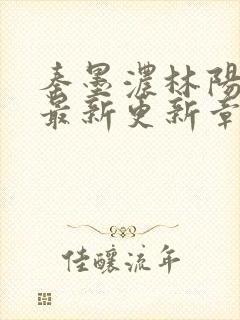 秦墨濃林陽
最新更新章
佳釀流年